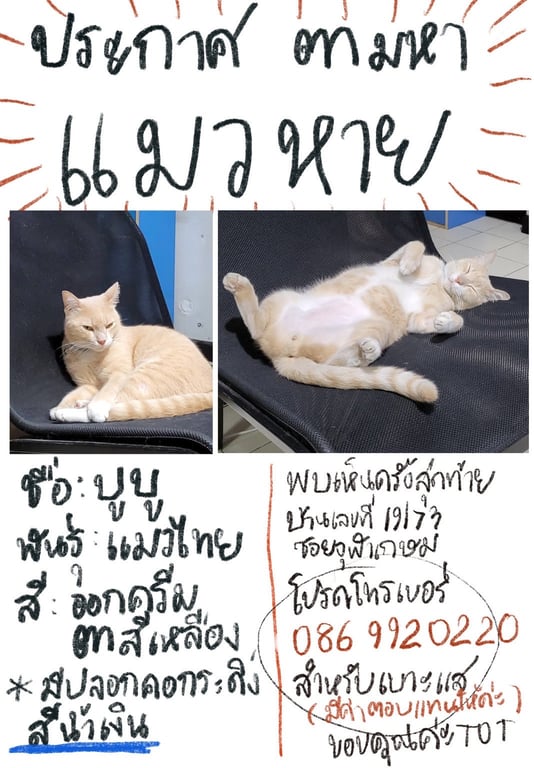 ประกาศ ตามหา
แมวหาย
ชื่อ: ปูปู
พันธุ์: แมวไทย
สี: ออกครีม
ตาสีเหลือง
* มีปลอกคอกระดิ่ง
สีน้ำเงิน
พบเห็นครั้งสุดท้าย
บ้านเลขที่ 19/73
ซอยจุฬาเกษม
โปรดโทรเบอร์
086 9920220
สำหรับเบาะแส
(มีค่าตอบแทนให้ค่ะ)
ขอบคุณค่ะ TOT